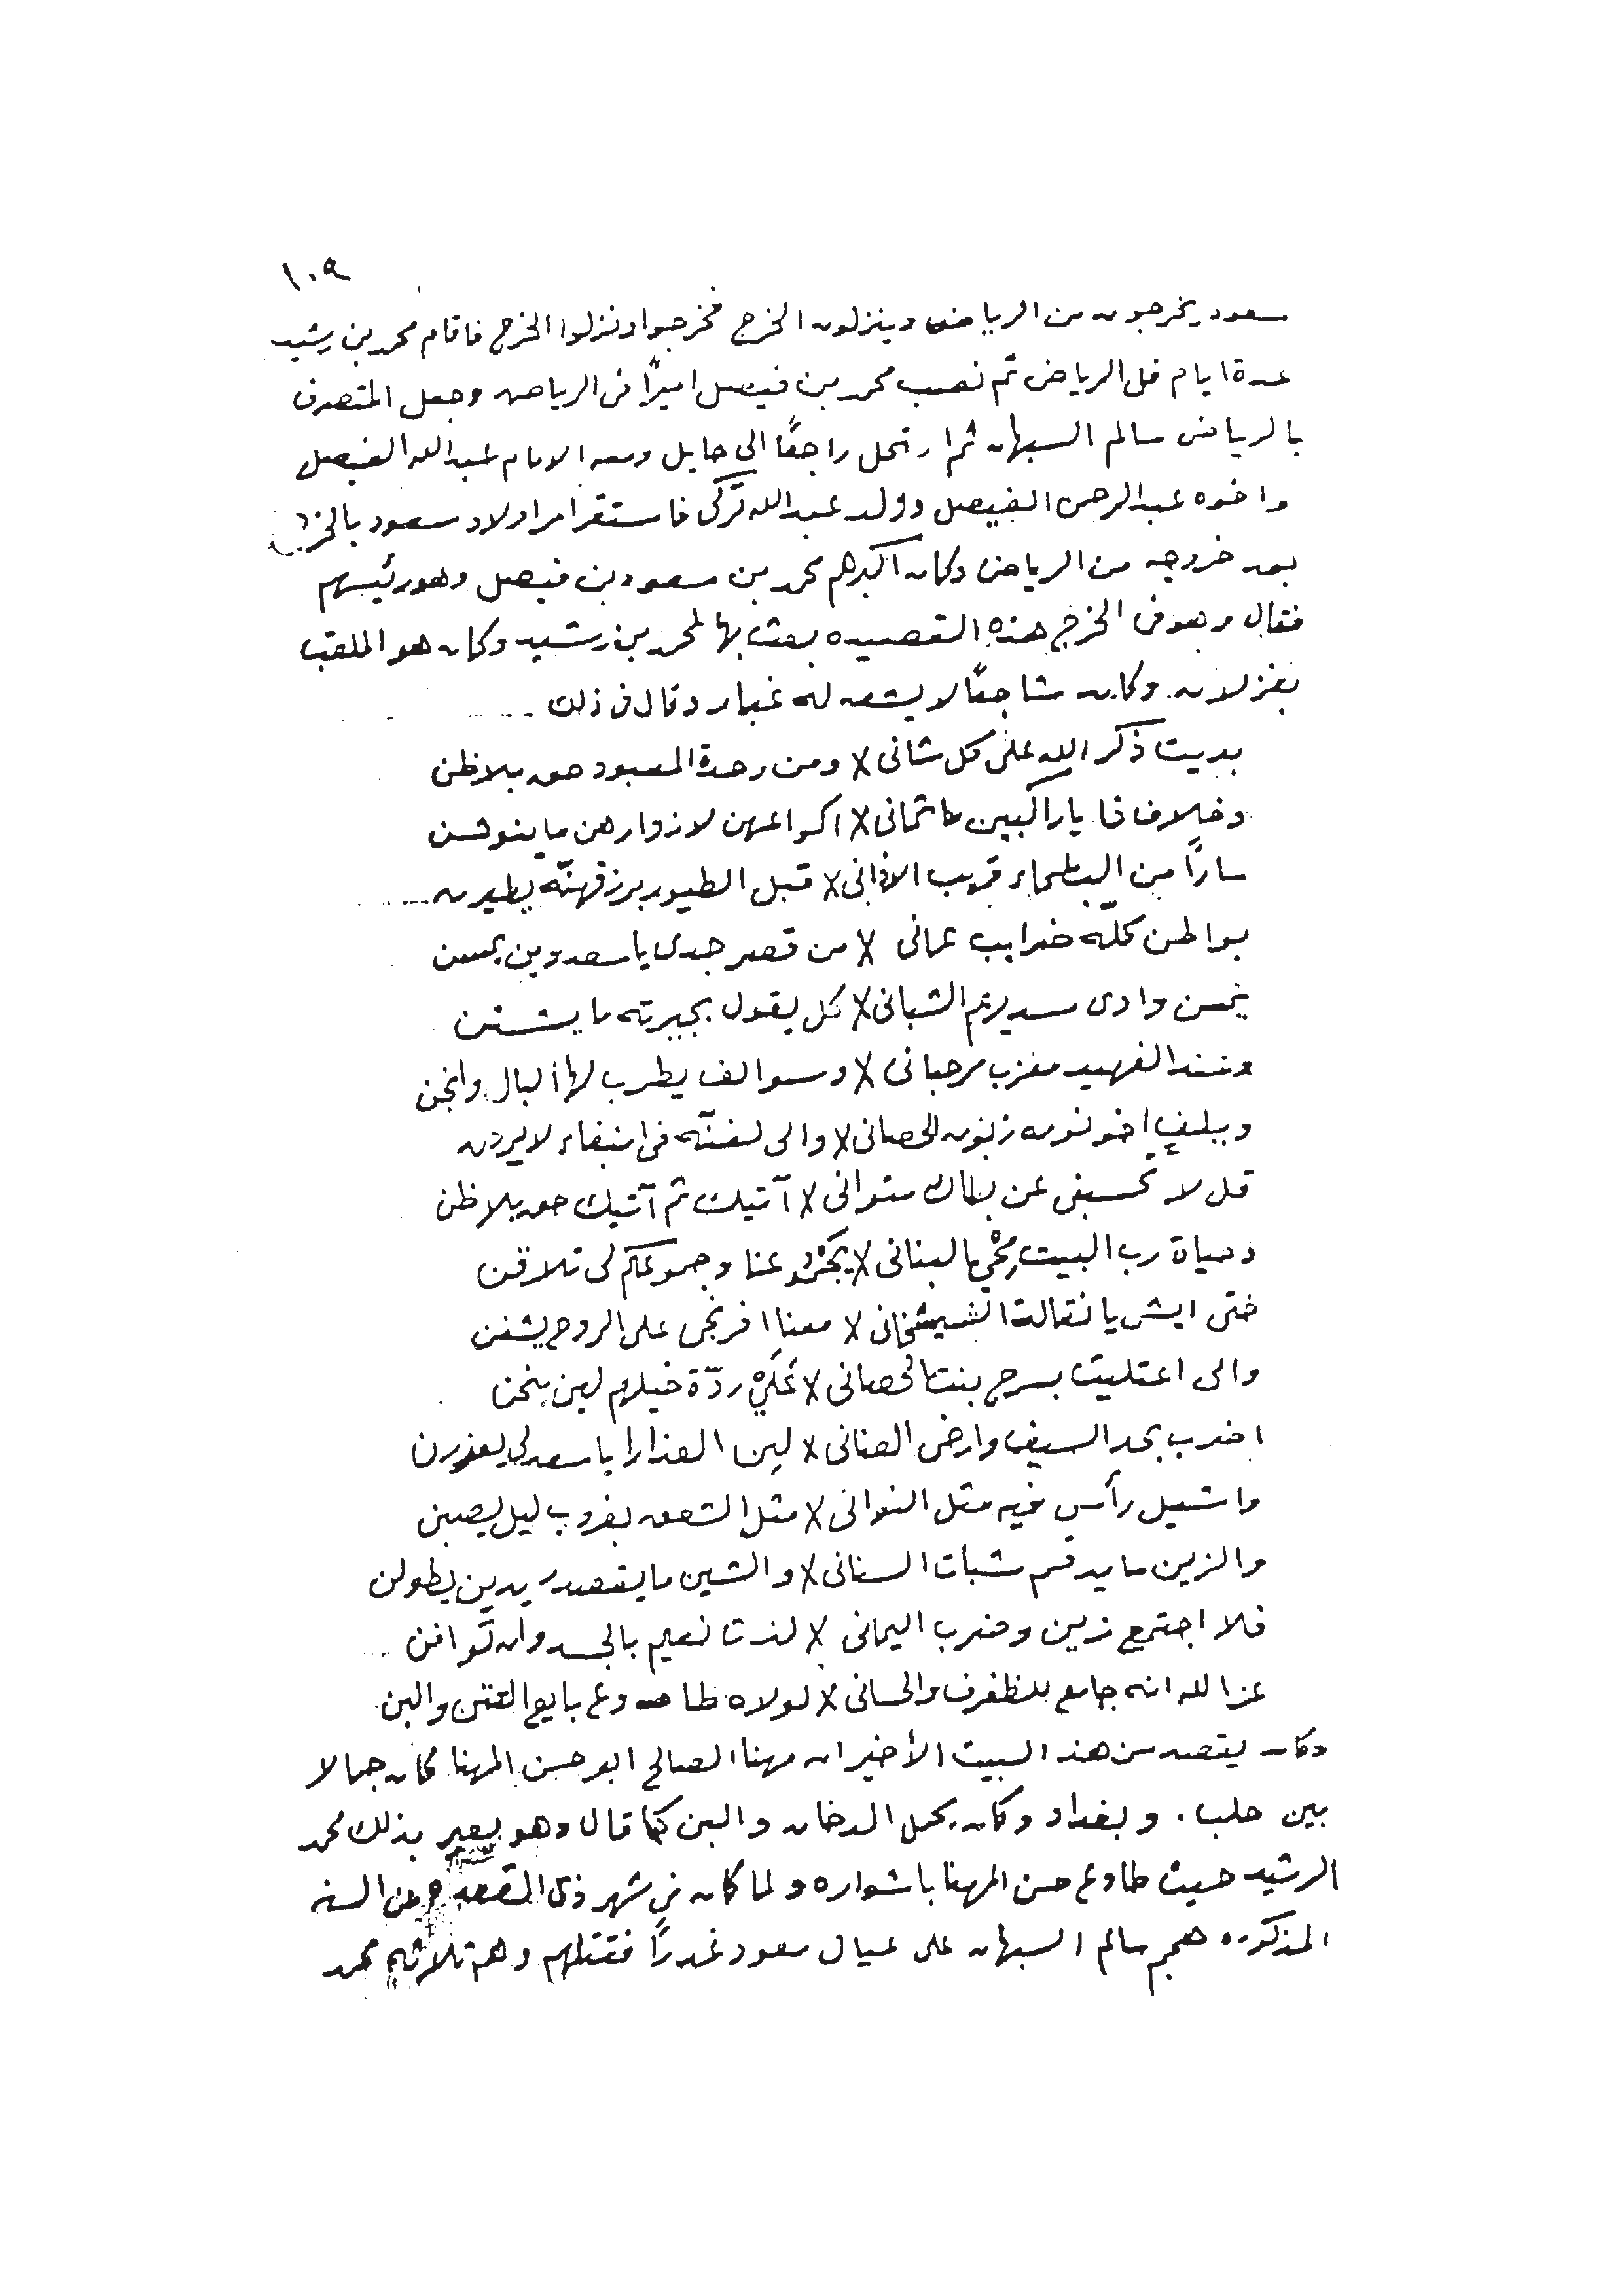 ١٠٩
سعود يخرجون من الرياض وينزلون الخرج فخرجوا ونزلوا الخرج فاقام محمد بن رشيد
عدة ايام في الرياض ثم نصب محمد بن فيصل اميرًا في الرياض وجعل المتصرف
بالرياض سالم السبهان ثم ارتحل راجعًا الى حايل ومعه الامام عبدالله الفيصل
واخوه عبدالرحمن الفيصل وولد عبدالله تركي فاستقر امر اولاد سعود بالخرج
بعد خروجه من الرياض وكان اكبرهم محمد بن سعود بن فيصل وهو رئيسهم
فقال وهو في الخرج هذه القصيده بعث بها لمحمد بن رشيد وكان هو الملقب
بغزلان وكان شاجعًا لا يشق له غبار وقال في ذلك
بديت ذكر الله على كل شانى لا ومن وحدة المعبود حق بلا ظن
وخلاف ذا يا راكبين ثمانى لا اكوا لهن لا زوارهن ما ينوشن
سارًا من البطحاء قريب الاذانى لا قبل الطيور برزقهنّه يطيرن
بواطن كلّه ضرايب عمانى لا من قصر جدى يا سعد وين يمسن
يمسن وادى سدير الشبانى لا كل يقول بجيرته ما يشتن
وتنند الفهيد معزب مرحبانى لا وسوالف يطرب لها البال وانجن
ويبلغ اخو نوره زبون الحصانى لا والى لفنّه في انبفاء لا يردن
قل لا تحسبنى عن بلاك متوانى لا آتيك ثم آتيك حق بلا ظن
وحياة رب البيت بالبنانى لا عنا وجموعكم لى تلاقن
حتى ايش يا نقالت الشيشخانى لا معنا افرنجى على الروح يشفن
والى اعتليت بسرج بنت الحصانى لا ردّة خيلهم لين ينحن
اضرب بحد السيف وارض العنانى لا لين العذارا يا سعد لى يعذرن
واشيل رأس فيه مثل النوانى لا مثل الشعق بغروب ليل يصبن
والزين ما يد قسم شبات السنانى لا والشين ما يقصر يدين يطولن
فلا اجتمع زين وضرب اليمانى لا لذت نعيم بالجسد وان توافن
عز الله انه جامع للظفر والحسانى لا لولاه طاوع بايع التتن والبن
وكان يقصد من هذ البيت الأخير ان مهنا الصالح ابو حسن المهنا كان جمالا
بين حلب . وبغداد وكان يحمل الدخان والبن كما قال وهو يعير بذلك محمد
الرشيد حيث طاوع حسن المهنا باشواره ولما كان في شهر ذى القعده من السنه
المذكوره هجم سالم السبهان على عيال سعود غدرًا فقتلهم وهم ثلاثه محمد